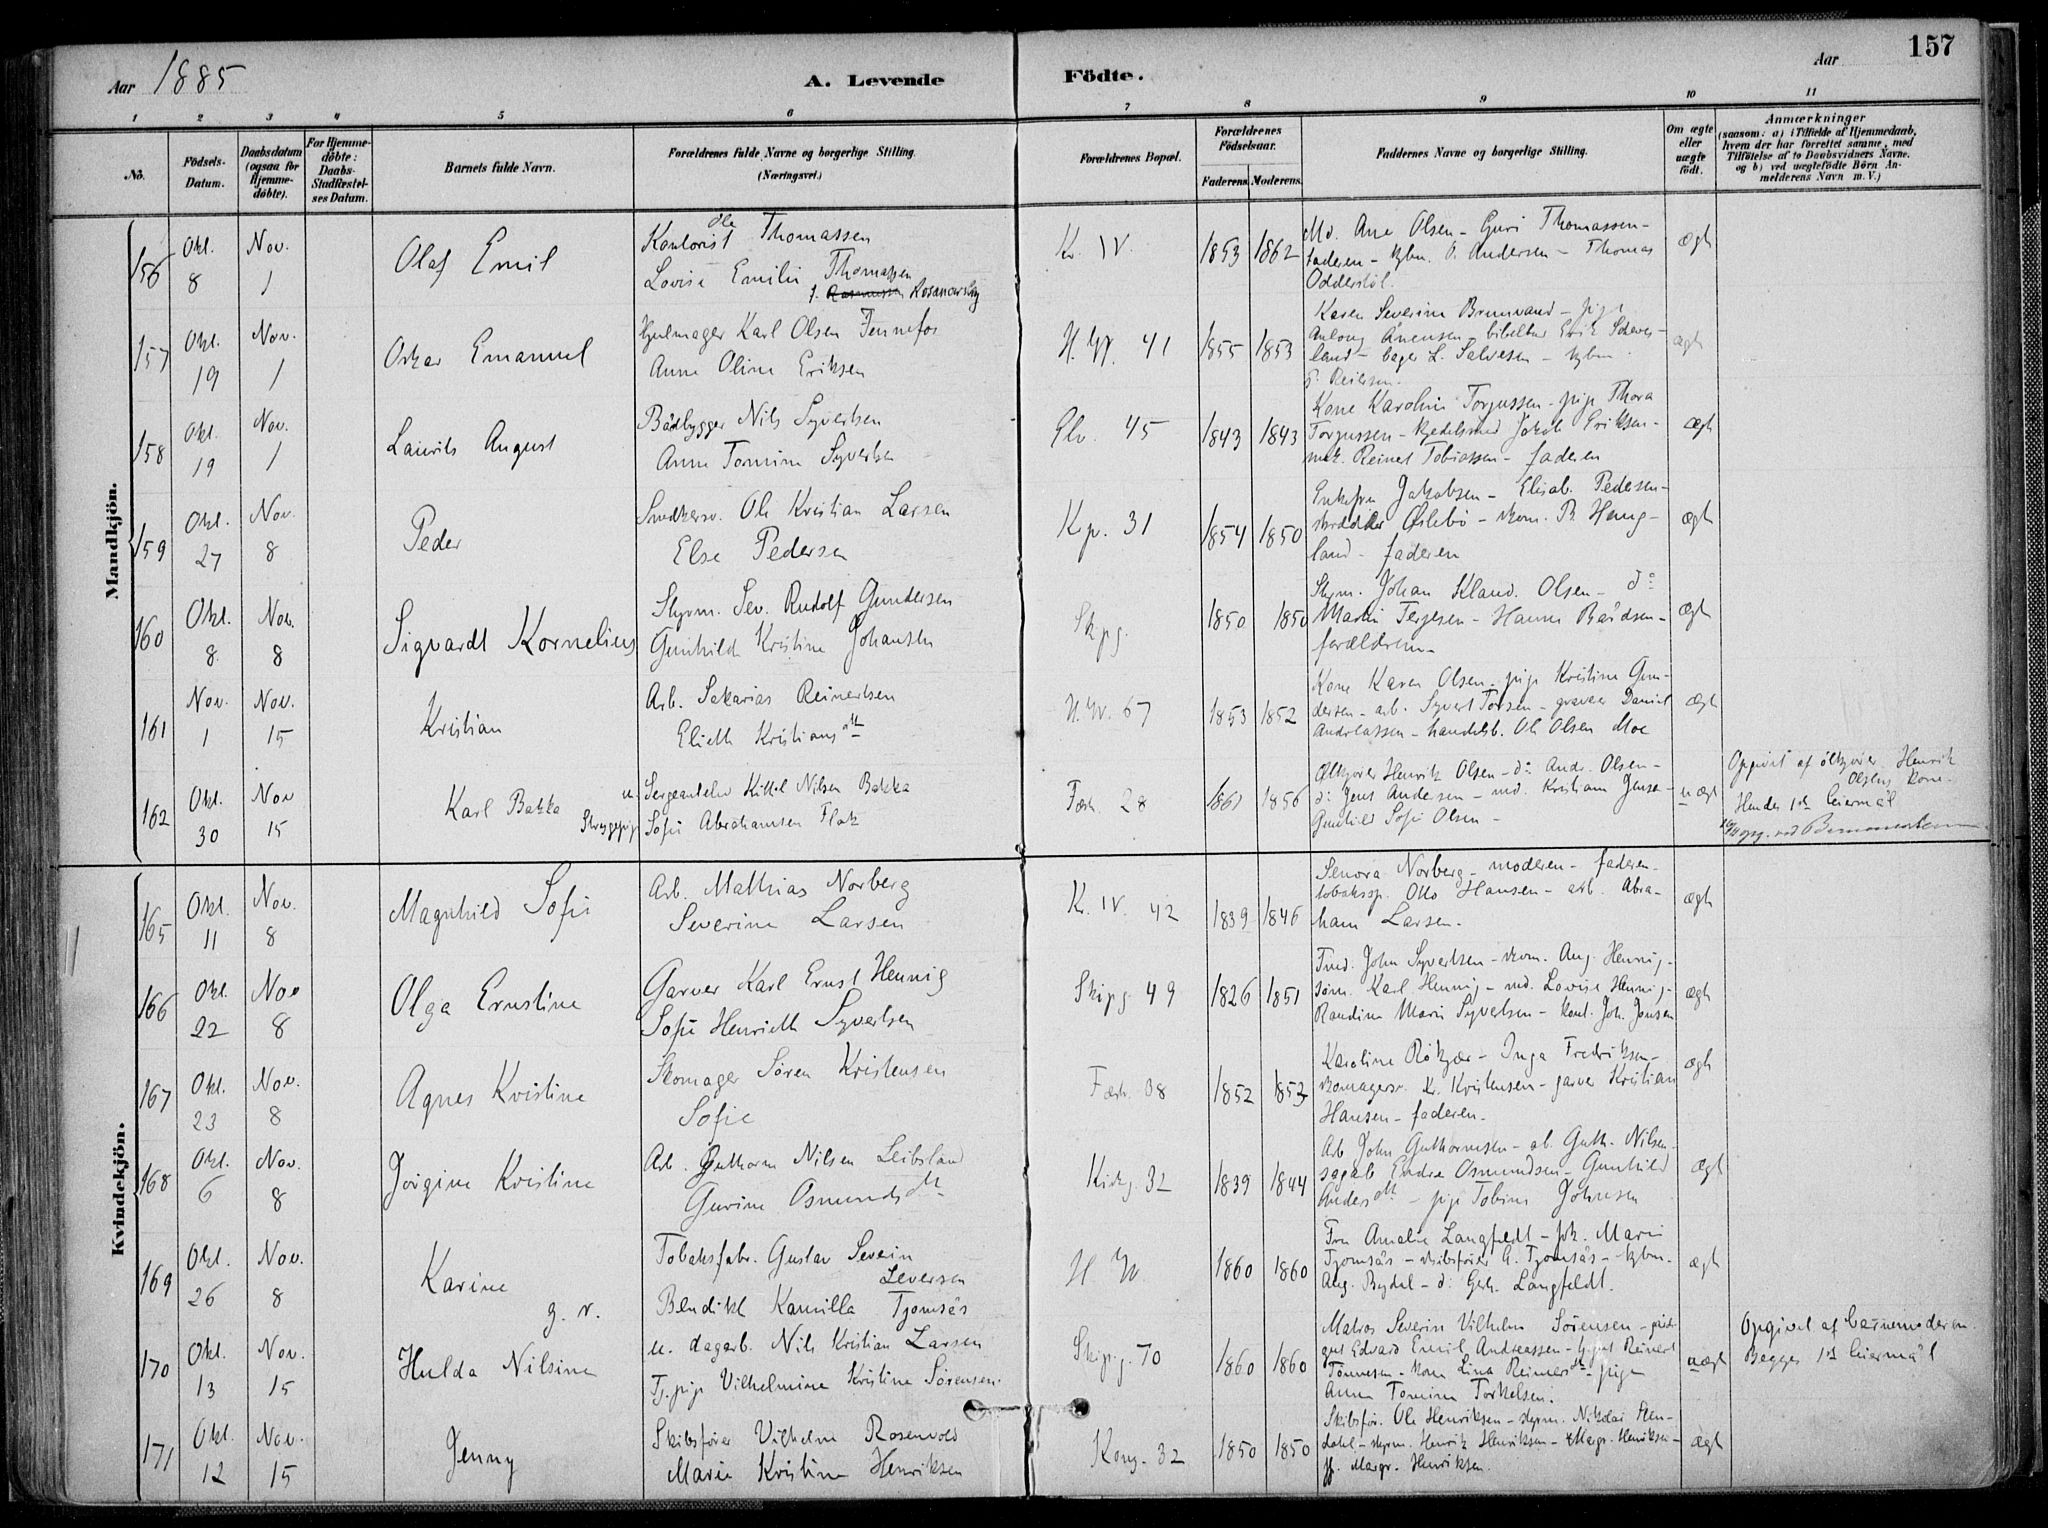 Aar 1885
A. Levende Födte.
Aar
157
1 2 3 4 5 6 7 8 9 10 11
No.
Födsels-Datum.
Daabsdatum (ogsaa for Hjemme-döbte).
For Hjemme-döbte: Daabs-Stadfæstel-ses Datum.
Barnets fulde Navn.
Forældrenes fulde Navne og borgerlige Stilling. (Næringsvei.)
Forældrenes Bopæl.
Forældrenes Födselsaar.
Faderens. Moderens.
Faddernes Navne og borgerlige Stilling.
Om ægte eller uægte födt.
Anmærkninger
(saasom: a) i Tilfælde af Hjemmedaab,
hvem der har forrettet samme, med
Tilföielse af to Daabsvidners Navne.
og b) ved uægtefödte Börn An-
melderens Navn m. V.)
Mandkjön.
156
Okt. 8
Nov. 1
Olaf Emil
Kontorist Ole Thomassen
Lovise Emilie Thomassen
f. Rasmussen
Kr. IV.
1853 1862
Md. Ane Olsen - Guri Thomassen -
faderen - kjbm. O. Andersen - Thomas
Odderstöl.
ægt
157
Okt. 19
Nov. 1
Oskar Emanuel
Hjulmager Karl Olsen Fennefos
Anne Oline Eriksen
H. W. 41
1855 1853
Karen Severine Brunvand - pige
land - bager L. Salvesen - kjbm.
Reiersen.
ægt
158
Okt. 19
Nov. 1
Laurits August
Baadbygger Nils Syvertsen
Anne Tomine Syvertsen
Elv. 45
1843 1843
Kone Karoline Torgussen - pige Thora
Torgussen - kjedelsmed Jakob Eriksen -
mek. Reinert Tobiassen - faderen
ægt
159
Okt. 27
Nov. 8
Peder
Snedkersv. Ole Kristian Larsen
Else Pedersen
Kp. 31
1854 1850
Enkefru Jakobsen - Elisab. Pedersen -
skrædder Öslebö - skom. B. Haug-
land - faderen
ægt
160
Okt. 8.
Nov. 8
Sigvardt Kornelius
Styrm. Sev. Rudolf Gundersen
Gunhilde Kristine Johansen
Skpg.
1850 1850
Styrm. Johan Kland. Olsen - do
Martin Terjesen - Hanne Baardsen -
forældrene -
ægt
161
Nov. 1
Nov. 15
Kristian
Arb. Sakarias Reinertsen
Elieth Kristiansdt
H. W. 67
1853 1852
Kone Karen Olsen - pige Kristine Gun-
dersen - arb. Syvert Torsen - graver Daniel
Andreassen - handelsb. Ole Olsen Moe
ægt
162
Okt. 30
Nov 15
Karl Bakka
u. Sergeantelev Kittel Nilsen Bakka
Strygepige Sofie Abrahamsen Flak
Fæst. 28
1861 1856
Ölkjörer Henrik Olsen - do Andr. Olsen -
do Jens Andersen - md. Kristiane Jense -
Gunhild Sofie Olsen -
uægt
Opgivet af ölkjörer Henrik
Olsens kone -
Hendes 1ste leiermål
Kvindekjön.
165
Okt. 11
Nov. 8
Magnhild Sofie
Arb. Mathias Norberg
Severine Larsen
Kr. IV. 42
1839 1846
Senora Norberg - moderen - faderen -
tobakssp. Otto Hansen - arb. Abra-
ham Larsen.
ægt
166
Okt. 22
Nov 8
Olga Ernstine
Garver Karl Ernst Hennig
Sofie Henriette Syvertsen
Skipg. 49
1826 1851
Fued. John Syvertsen - skom. Aug. Hennig -
sörm. Karl Hennig - md. Lovise Hennig -
Randine Marie Syvertsen - kont. Joh. Jonsen
ægt
167
Okt. 23
Nov. 8
Agnes Kristine
Skomager Sören Kristensen
Sofie
Fæst. 38
1852 1852
Karoline Rökjær - Inga Fredriksen -
skomagersv. Kr. Kristensen - garver Kristian
Hansen - faderen -
ægt
168
Okt. 6
Nov. 8
Jörgine Kristine
Arb. Guthorm Nilsen Leibsland
Gurine Osmundsdt
Kirkg. 32
1839 1844
Arb John Guthormsen - ab. Guth. Nilsen
sagab Endre Osmundsen - Gunhild
Andersdt - pige Tobine Johnsen
ægt
169
Okt. 26
Nov. 8
Karine
g. v.
Tobaksfabr. Gustav Severin
Seversen
Bendikt Kamilla Tjomsås
H. W.
1860 1860
Fru Amalie Langfeldt - frk. Marie
Tjomsås - skibsförer A. Tjomsås - kjbm.
Aug. Rydel - do Gerh. Langfeldt.
ægt
170
Okt. 13
Nov. 15
Hulda Nilsine
u. dagarb. Nils Kristian Larsen
Tj. pige Vilhelmine Kristine Sörensen.
Skipg. 70
1860 1860
Matros Severin Vilhelm Sörensen -
gut Edvard Emil Andreassen - gut Reinert
Tönnesen - kone Lina Reinersdt - pige
Anne Tomine Torkelsen.
uægt
Opgivet af barnemoderen.
Begges 1ste leiermål
171
Okt. 12
Nov. 15
Jenny
Skibsförer Vilhelm Rosenvold
Marie Kristine Henriksen
Kong. 32
1850 1850
Skibsför. Ole Henriksen - styrm. Nikolai Sten-
dahl - styrm. Henrik Henriksen - Margr. Henriksen -
jf. Margr. Henriksen.
ægt